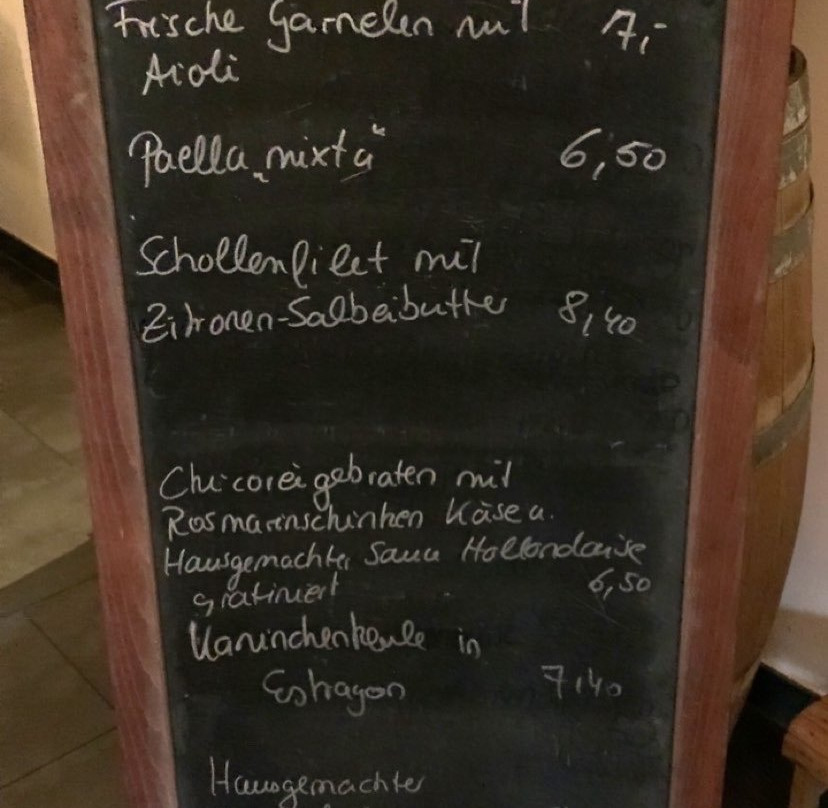 Frische Garnelen mit 7,-
Aioli
Paella „mixta“ 6,50
Schollenfilet mit
Zitronen-Salbeibutter 8,40
Chicoreé gebraten mit
Rosmarinschinken Käse u.
Hausgemachter Sauce Hollondaise
gratiniert 6,50
Kaninchenkeule in
Estragon 7,40
Hausgemachter